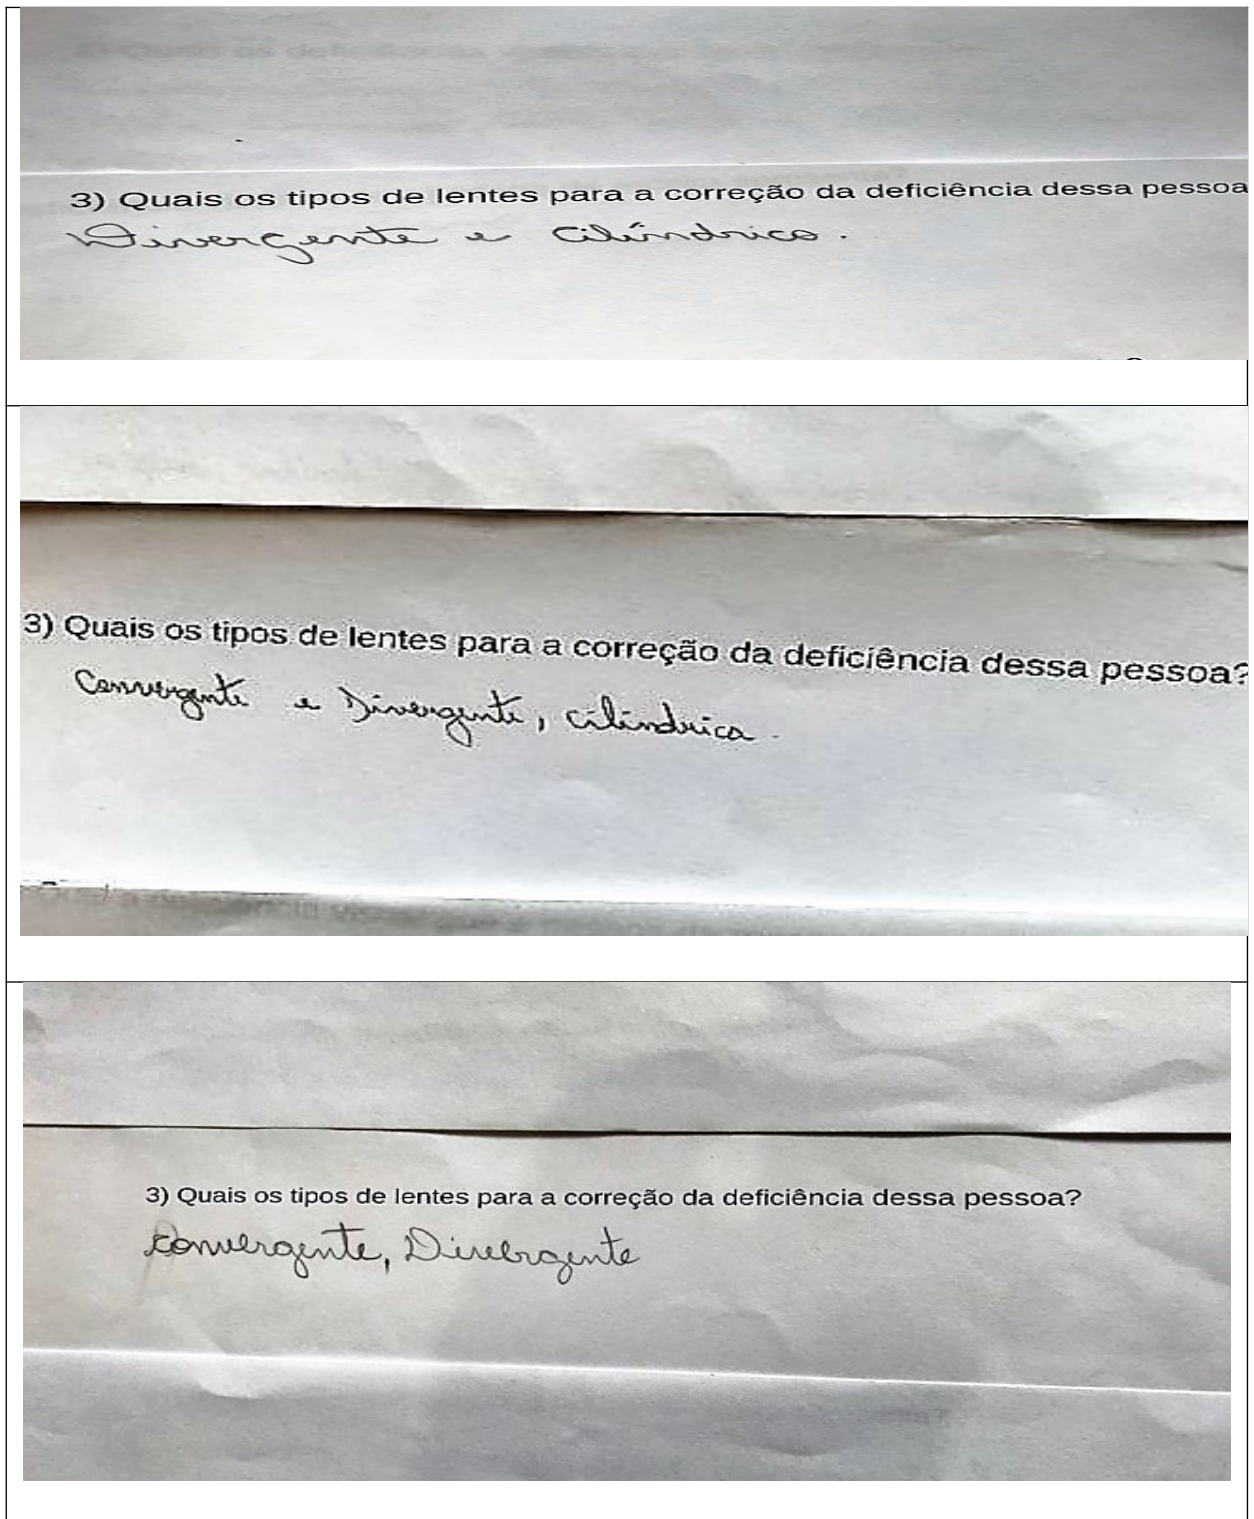 3) Quais os tipos de lentes para a correção da deficiência dessa pessoa
Divergente e cilíndrica.
3) Quais os tipos de lentes para a correção da deficiência dessa pessoa?
Convergente e Divergente, cilíndrica.
3) Quais os tipos de lentes para a correção da deficiência dessa pessoa?
Convergente, Divergente